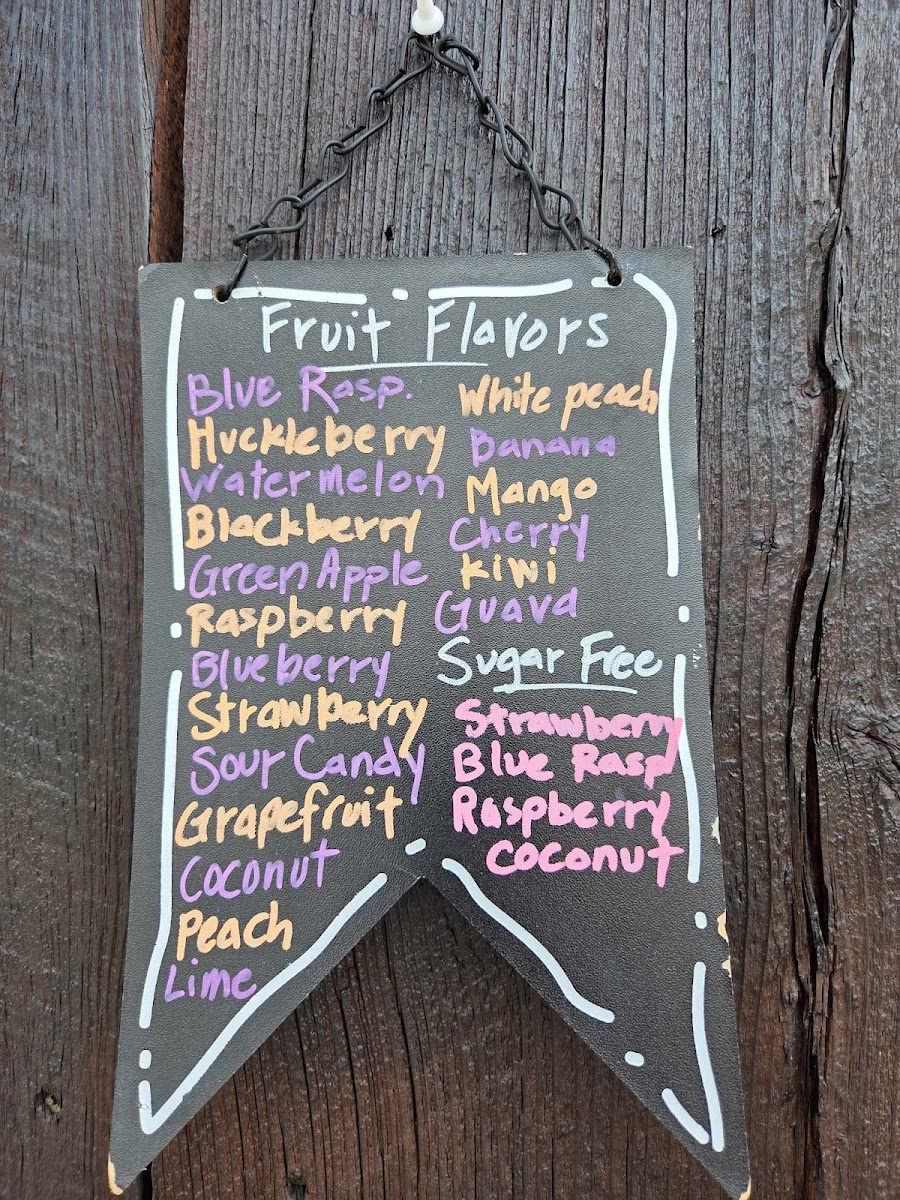 Fruit Flavors
Blue Rasp.
Huckleberry
Watermelon
Blackberry
Green Apple
Raspberry
Blueberry
Strawberry
Sour Candy
Grapefruit
Coconut
Peach
Lime
White peach
Banana
Mango
Cherry
Kiwi
Guava
Sugar Free
Strawberry
Blue Rasp
Raspberry
Coconut